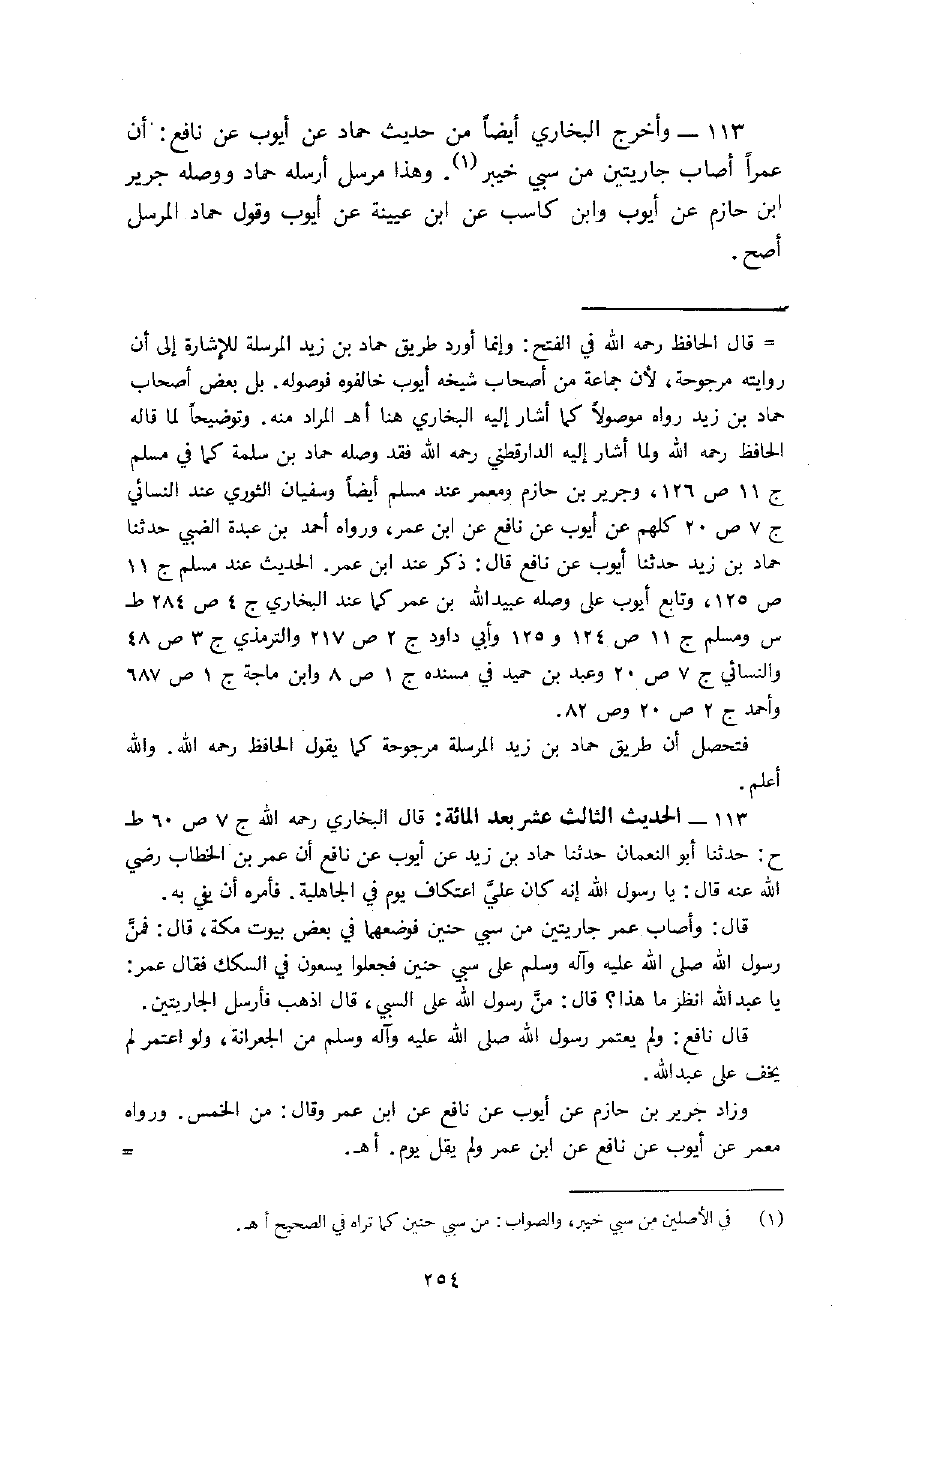 ١١٣ ـ وأخرج البخاري أيضاً من حديث حماد عن أيوب عن نافع: أن
عمراً أصاب جاريتين من سبي خيبر(١). وهذا مرسل أرسله حماد ووصله جرير
ابن حازم عن أيوب وابن كاسب عن ابن عيينة عن أيوب وقول حماد المرسل
أصح.
= قال الحافظ رحمه الله في الفتح: وإنما أورد طريق حماد بن زيد المرسلة للإشارة إلى أن
روايته مرجوحة، لأن جماعة من أصحاب شيخه أيوب خالفوه فوصلوه. بل بعض أصحاب
حماد بن زيد رواه موصولاً كما أشار إليه البخاري هنا أهـ المراد منه. وتوضيحاً لما قاله
الحافظ رحمه الله ولما أشار إليه الدارقطني رحمه الله فقد وصله حماد بن سلمة كما في مسلم
ج ١١ ص ١٢٦، وجرير بن حازم ومعمر عند مسلم أيضاً وسفيان الثوري عند النسائي
ج ٧ ص ٢٠ كلهم عن أيوب عن نافع عن ابن عمر، ورواه أحمد بن عبدة الضبي حدثنا
حماد بن زيد حدثنا أيوب عن نافع قال: ذكر عند ابن عمر. الحديث عند مسلم ج ١١
ص ١٢٥، وتابع أيوب على وصله عبيدالله بن عمر كما عند البخاري ج ٤ ص ٢٨٤ طـ
س ومسلم ج ١١ ص ١٢٤ و ١٢٥ وأبي داود ج ٢ ص ٢١٧ والترمذي ج ٣ ص ٤٨
والنسائي ج ٧ ص ٢٠ وعبد بن حميد في مسنده ج ١ ص ٨ وابن ماجة ج ١ ص ٦٨٧
وأحمد ج ٢ ص ٢٠ وص ٨٢.
فتحصل أن طريق حماد بن زيد المرسلة مرجوحة كما يقول الحافظ رحمه الله. والله
أعلم.
١١٣ ـ الحديث الثالث عشر بعد المائة: قال البخاري رحمه الله ج ٧ ص ٦٠ طـ
ح: حدثنا أبو النعمان حدثنا حماد بن زيد عن أيوب عن نافع أن عمر بن الخطاب رضي
الله عنه قال: يا رسول الله إنه كان عليَّ اعتكاف يوم في الجاهلية. فأمره أن يفي به.
قال: وأصاب عمر جاريتين من سبي حنين فوضعهما في بعض بيوت مكة، قال: فمنَّ
رسول الله صلى الله عليه وآله وسلم على سبي حنين فجعلوا يسعون في السكك فقال عمر:
يا عبدالله انظر ما هذا؟ قال: منَّ رسول الله على السبي، قال اذهب فأرسل الجاريتين.
قال نافع: ولم يعتمر رسول الله صلى الله عليه وآله وسلم من الجعرانة، ولو اعتمر لم
يخف على عبدالله.
وزاد جرير بن حازم عن أيوب عن نافع عن ابن عمر وقال: من الخمس. ورواه
معمر عن أيوب عن نافع عن ابن عمر ولم يقل يوم. أهـ. =
(١) في الأصلين من سبي خيبر، والصواب: من سبي حنين كما تراه في الصحيح أ هـ.
٢٥٤